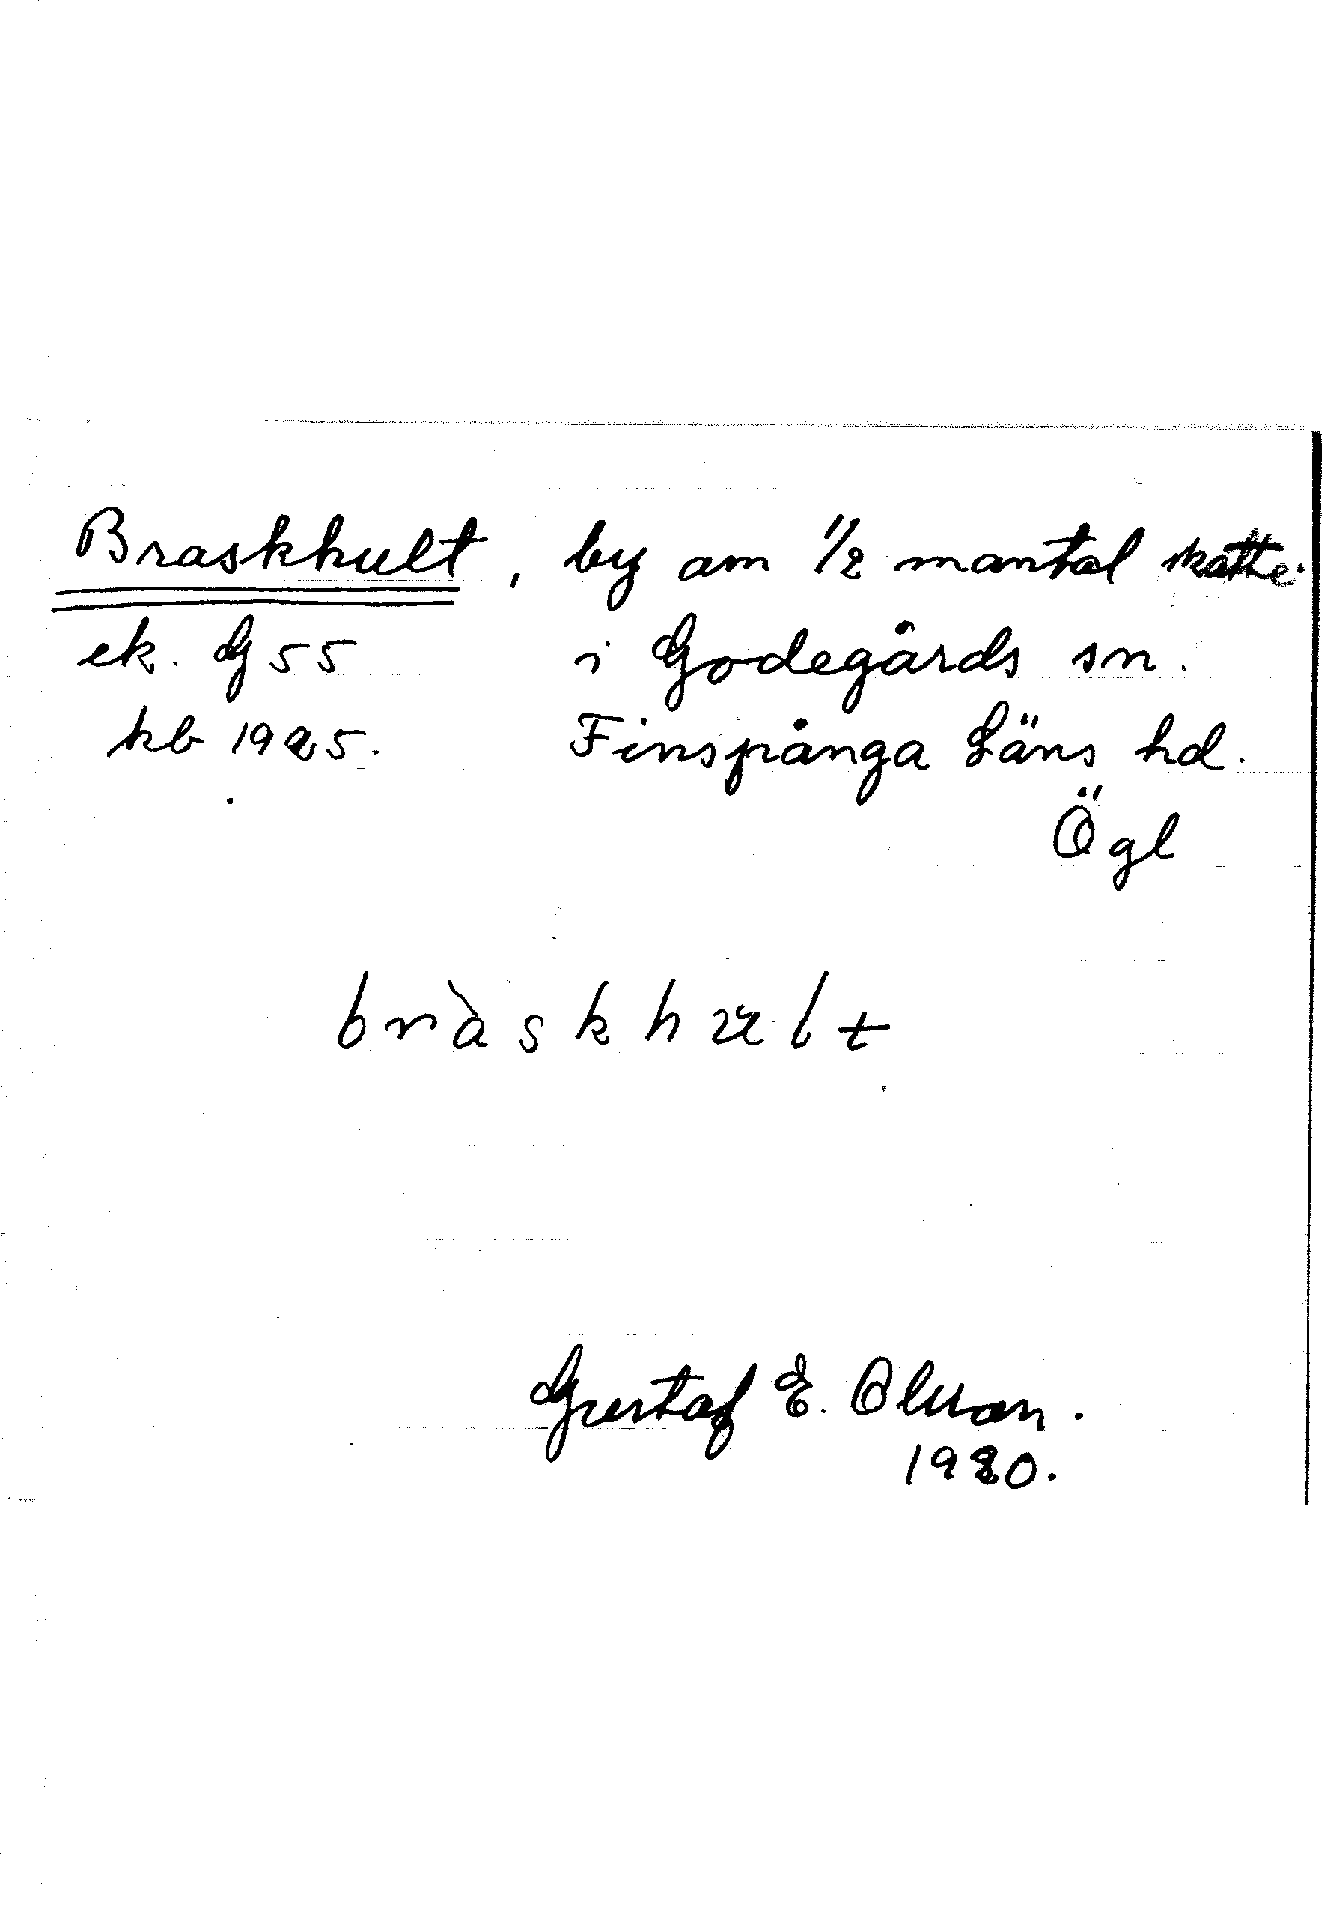 Braskhult, by om 1/2 mantal skatte
ek. G 55 i Godegårds sn.
hb 1925. Finspånga Läns hd.
Ögl
bràskhult
Gustaf E. Olsson.
1920.